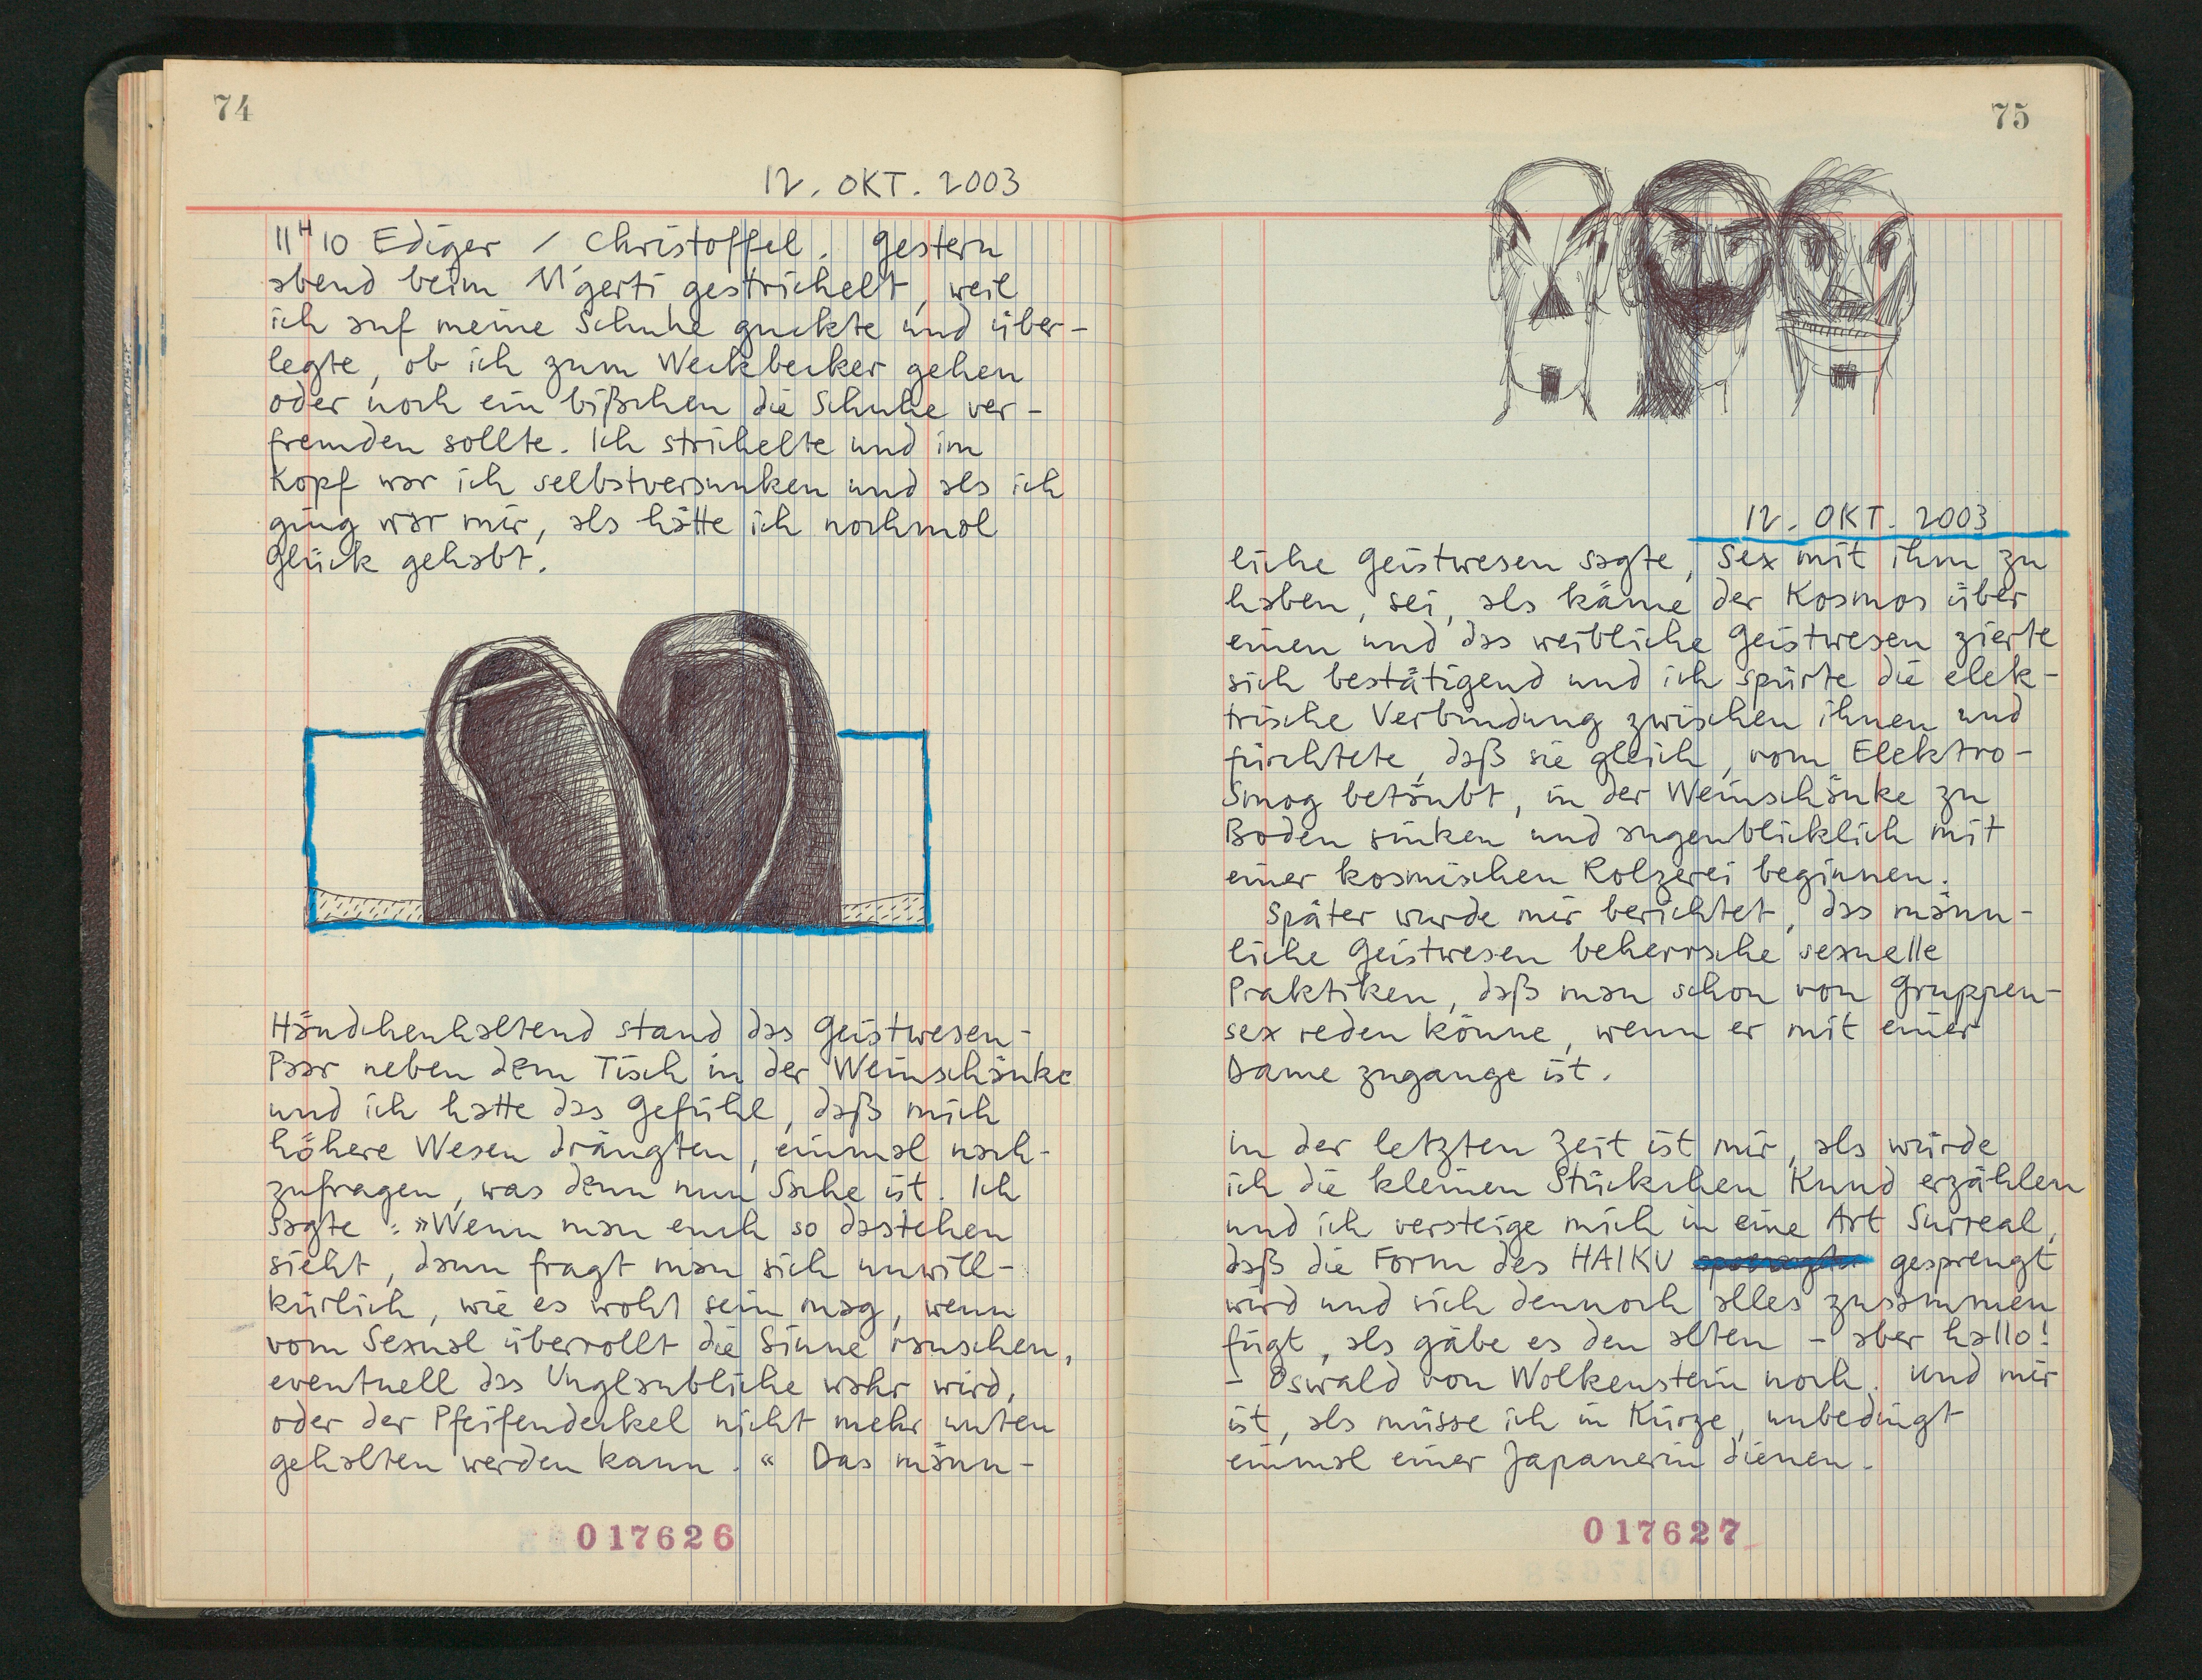 74
12. OKT. 2003
11H10 Ediger / Christoffel. Gestern
abend beim gestrichelt, weil
ich auf meine Schuhe guckte und über-
legte, ob ich zum Weckbecker gehen
oder noch ein bißchen die Schuhe ver-
fremden sollte. Ich strichelte und im
Kopf war ich selbstversunken und als ich
ging war mir, als hätte ich nochmal
Glück gehabt.
Händchenhaltend stand das Geistwesen-
Paar neben dem Tisch in der Weinschänke
und ich hatte das Gefühl, daß mich
höhere Wesen drängten, einmal nach-
zufragen, was denn nun Sache ist. Ich
sagte: »Wenn man euch so dastehen
sieht, dann fragt man sich unwill-
kürlich, wie es wohl sein mag, wenn
vom Sexual überrollt die Sinne rauschen,
eventuell das Unglaubliche wahr wird,
oder der Pfeifendeckel nicht mehr unten
gehalten werden kann.« Das männ-
017626
75
12. OKT. 2003
liche Geistwesen sagte, Sex mit ihm zu
haben, sei, als käme der Kosmos über
einen und das weibliche Geistwesen zierte
sich bestätigend und ich spürte die elek-
trische Verbindung zwischen ihnen und
fürchtete, daß sie gleich, vom Elektro-
Smog betäubt, in der Weinschänke zu
Boden sinken und augenblicklich mit
einer kosmischen Kolzerei beginnen.
Später wurde mir berichtet, das männ-
liche Geistwesen beherrsche sexuelle
Praktiken, daß man schon von Gruppen-
sex reden könne, wenn er mit einer
Dame zugange ist.
In der letzten Zeit ist mir, als würde
ich die kleinen Stückchen Knud erzählen
und ich versteige mich in eine Art Surreal,
daß die Form des HAIKU gesprengt
wird und sich dennoch alles zusammen
fügt, als gäbe es den alten - aber hallo!
- Oswald von Wolkenstein noch. Und mir
ist, als müsse ich in Kürze, unbedingt
einmal einer Japanerin dienen.
017627